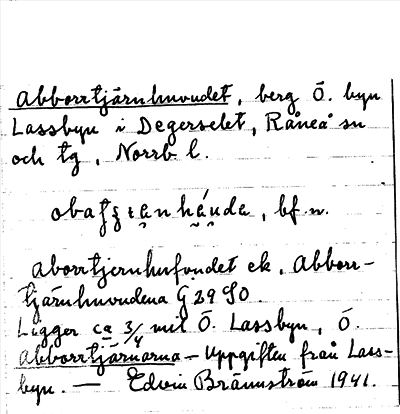 Abborrtjärnhuvudet, berg Ö. byn
Lassbyn i Degerselet, Råneå sn
och tg, Norrb l.
bf. n.
aborrtjernhufvudet ek. Abborr-
tjärnhuvudena G 29 SO.
Ligger ca 3/4 mil Ö. Lassbyn, Ö.
Abborrtjärnarna – Uppgiften från Lass-
byn. — Edvin Brännström 1941.